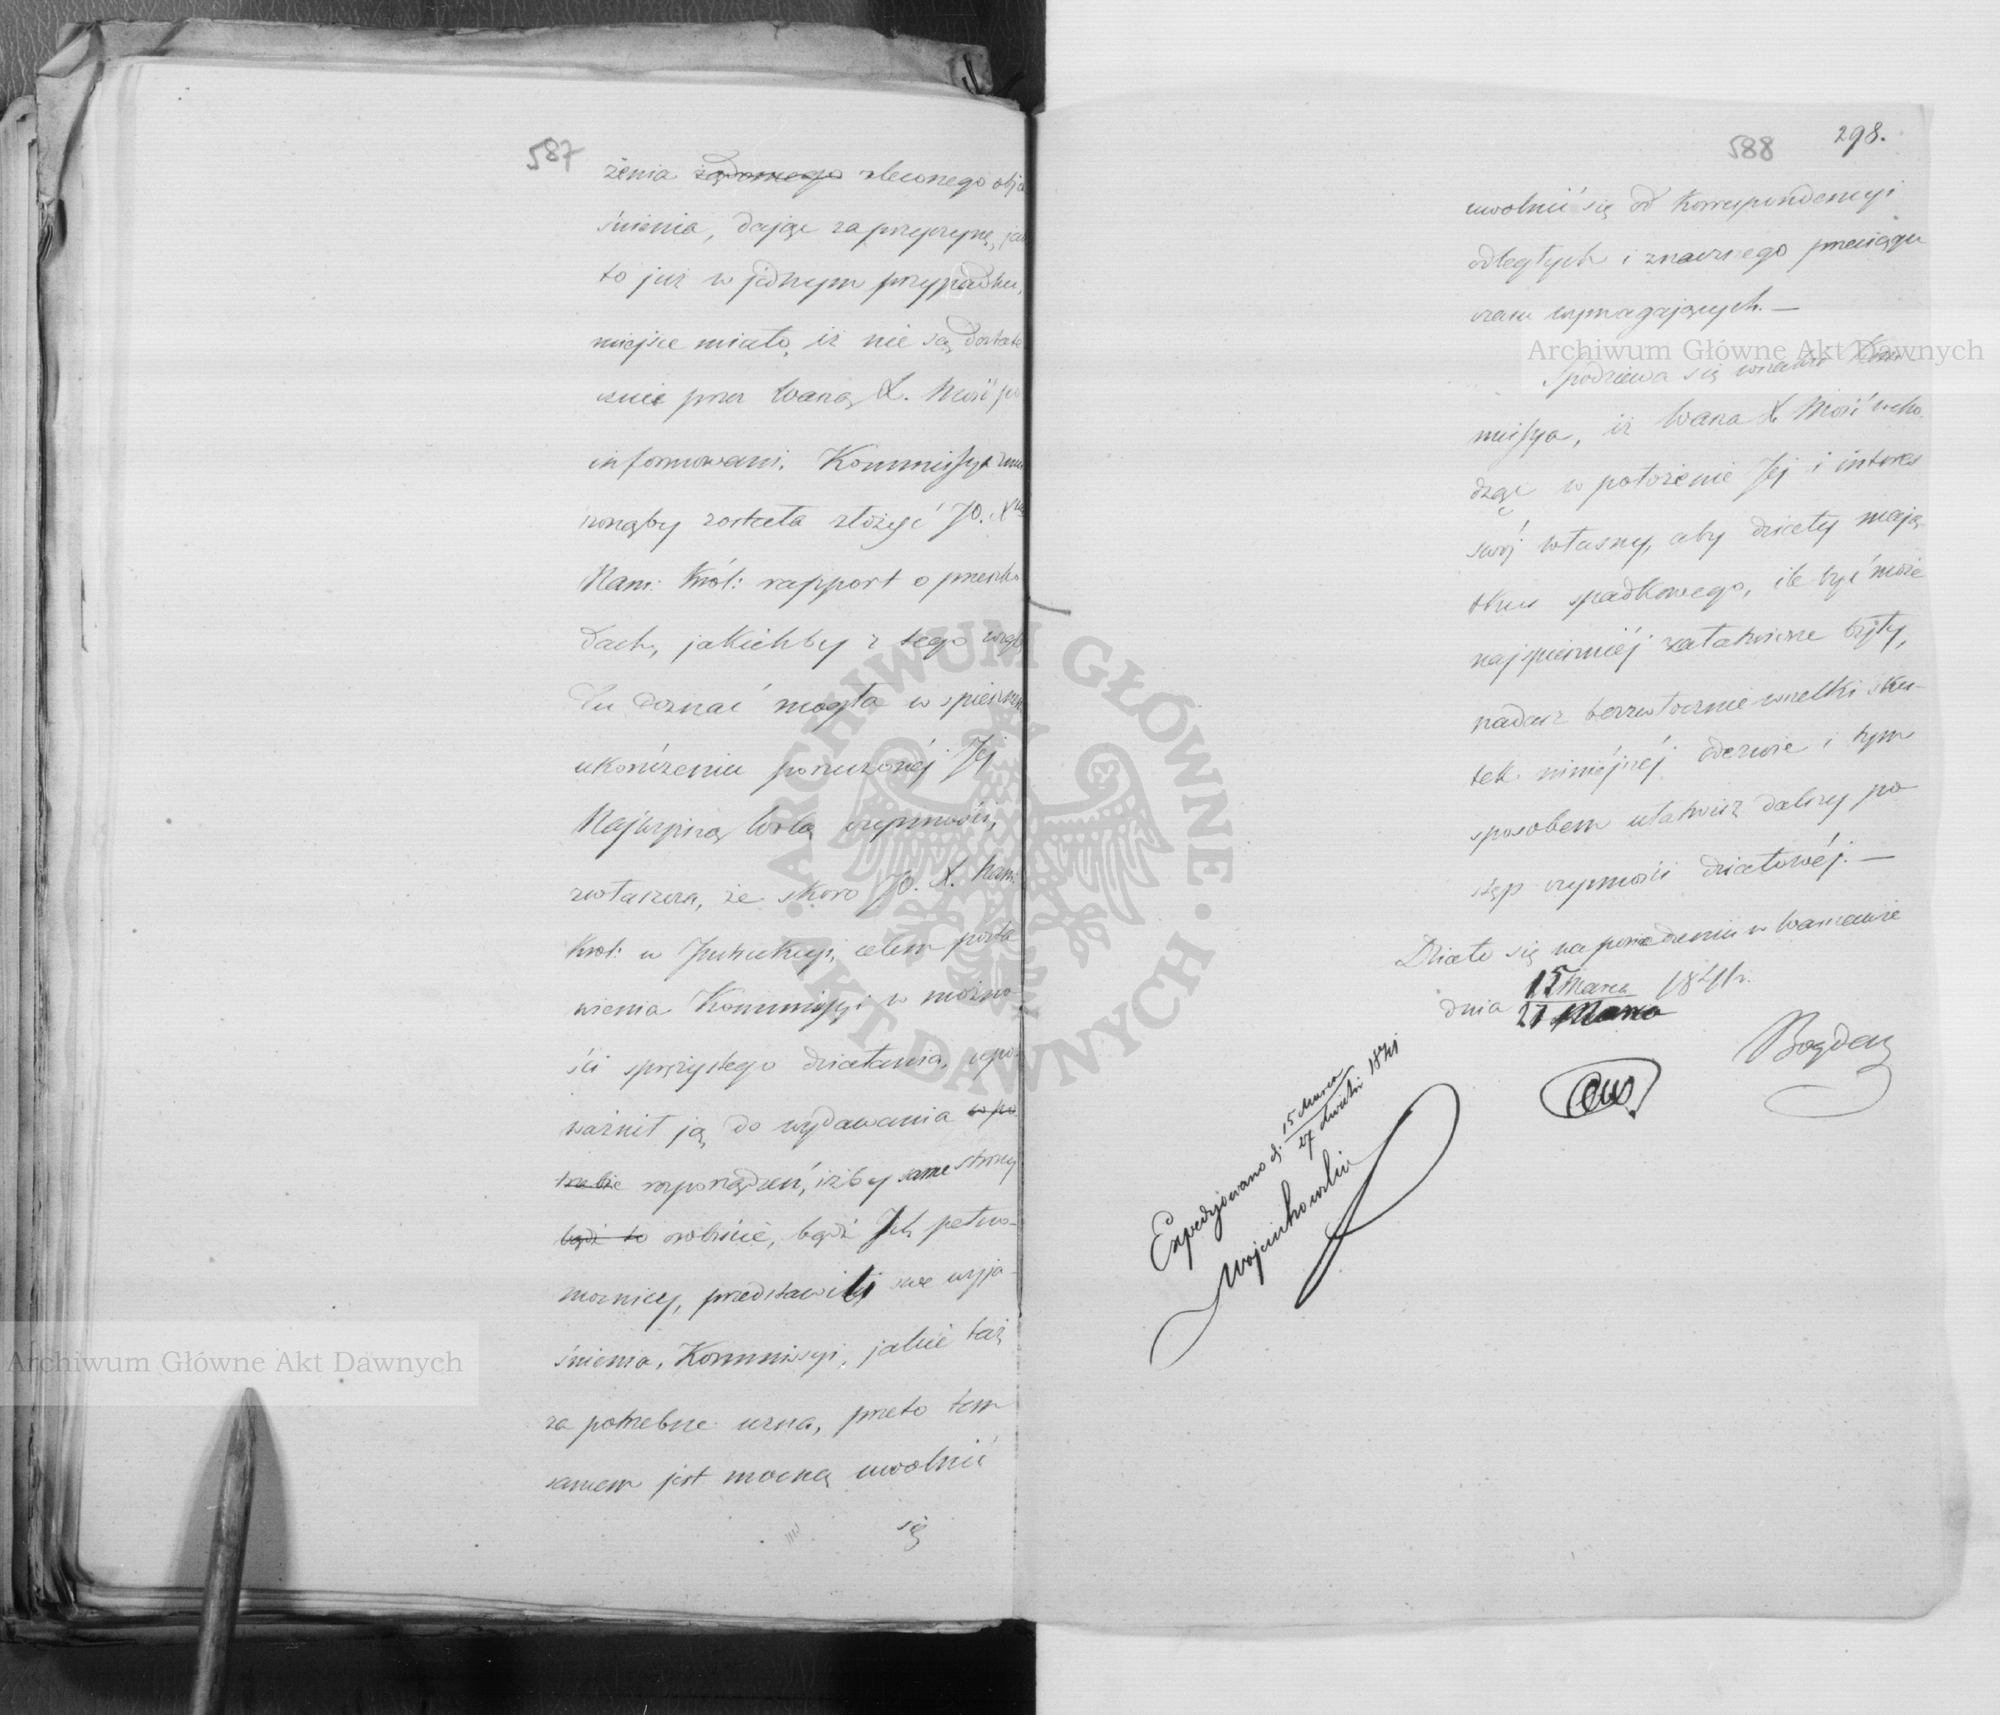 587
żenia żądanego zleconego obja
śnienia, dając za przyczynę, jak
to już w jednym przypadku,
miejsce miało, iż nie są dostate
cznie przez Waszą X. Mość po
informowani, Kommissya zmu
szonąby została złożyć JO. X
Nam: Król: rapport o przeszko
dach, jakichby z tego wzglę
du doznać mogła w spiesznem
ukończeniu poruczonéj Jéj
Najwyższą Wolą czynności,
zwłaszcza, że skoro JO. X. Nam:
Król: w Instrukcyi, celem posta
wienia Kommissyi w możno
ści sprężystego działania, upo
ważnił ją do wydawania w po
trzebie rozporządzeń, iżby same strony
bądź to osobiście, bądź Ich pełno-
mocnicy, przedstawili swe wyja-
śnienia, Kommissyi, jakie taż
za potrzebne uzna, przeto tem
samem jest mocną uwolnić
się
588
298.
uwolnić się od korrespondencyi
odległych i znacznego przeciągu
czasu wymagających. —
Spodziewa się wszakże Kom-
missya, iż Wasza X Mość wcho
dząc w położenie Jéj i interes
swój własny, aby działy mają-
tku spadkowego, ile być może
najspieszniéj załatwione były,
nadasz bezzwłocznie wszelki sku-
tek niniejszéj odezwie i tym
sposobem ułatwisz dalszy po
stęp czynności działowéj. —
Działo się na posiedzeniu w Warszawie
dnia 15 Marca 1841 r.
27 Marca
Bogdan
Expedyowano d. 15 Marca
27 Kwietni 1841
Wojciechowski
Archiwum Główne Akt Dawnych
Archiwum Główne Akt Dawnych
ARCHIWUM GŁÓWNE
AKT DAWNYCH